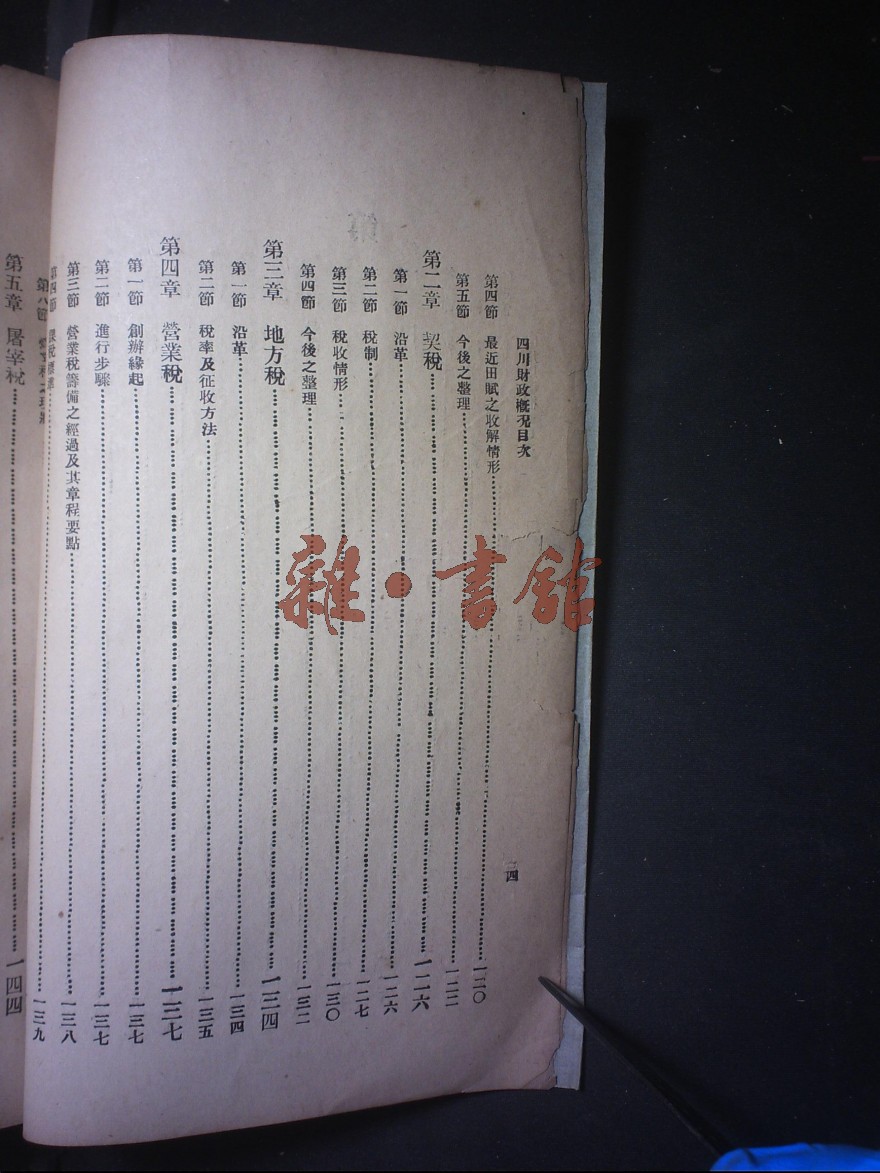 四川財政概況目次
四
第四節 最近田賦之收解情形 一二〇
第五節 今後之整理 一二二
第二章 契稅 一二六
第一節 沿革 一二六
第二節 稅制 一二七
第三節 稅收情形 一三〇
第四節 今後之整理 一三二
第三章 地方稅 一三四
第一節 沿革 一三四
第二節 稅率及征收方法 一三五
第四章 營業稅 一三七
第一節 創辦緣起 一三七
第二節 進行步驟 一三七
第三節 營業稅籌備之經過及其章程要點 一三八
第四節 課稅標準 一三九
第五章 屠宰稅 一四四
雜·書館